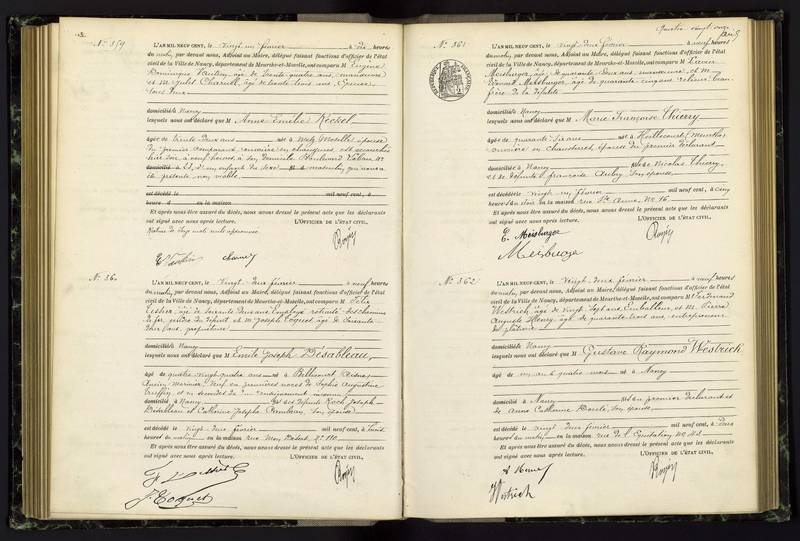 N° 359
L'AN MIL NEUF CENT, le vingt un février à dix heures
du matin, par devant nous, Adjoint au Maire, délégué faisant fonctions d'officier de l'état
civil de la Ville de Nancy, département de Meurthe-et-Moselle, ont comparu M Eugène
Dominique âgé de trente quatre ans, manœuvre
et M Jules âgé de trente trois ans,
tous deux
domiciliés Nancy
lesquels nous ont déclaré que M Anne Emélie Reckel
âgée de trente deux ans née à Metz, Moselle, épouse
du premier comparant, ouvrière en chaussures, est accouchée
hier soir à neuf heures, à son domicile, Boulevard Lobau N°
domicilié à d'un enfant du sexe masculin qui nous a
été présenté non viable.
est décédé le mil neuf cent, à
heure d en la maison
Et après nous être assuré du décès, nous avons dressé le présent acte que les déclarants
ont signé avec nous après lecture. L'OFFICIER DE L'ÉTAT CIVIL,
mots nuls approuvés
N° 360
L'AN MIL NEUF CENT, le vingt-deux février à neuf heures
du matin, par devant nous, Adjoint au Maire, délégué faisant fonctions d'officier de l'état
civil de la Ville de Nancy, département de Meurthe-et-Moselle, ont comparu M Félix
âgé de soixante deux ans, employé retraité des chemins
de fer, gendre du défunt et M Joseph Coquet, âgé de soixante
deux ans, propriétaire
domiciliés Nancy
lesquels nous ont déclaré que M Emile Joseph Désableau,
âgé de quatre vingt quatre ans né à Aisne,
ancien marinier, veuf en premières noces de Sophie Augustine
et en secondes de "sans renseignement"
domicilié à Nancy fils des défunts Roch Joseph
Désableau et Catherine Josèphe son épouse
est décédé le vingt-deux février mil neuf cent, à huit
heures du matin en la maison rue Mon Désert, N° 110
Et après nous être assuré du décès, nous avons dressé le présent acte que les déclarants
ont signé avec nous après lecture. L'OFFICIER DE L'ÉTAT CIVIL,
J. Coquet
quatre vingt onze
N° 361
L'AN MIL NEUF CENT, le vingt deux février à neuf heures
du matin, par devant nous, Adjoint au Maire, délégué faisant fonctions d'officier de l'état
civil de la Ville de Nancy, département de Meurthe-et-Moselle, ont comparu M
Meisburger, âgé de quarante deux ans, manœuvre, et M
Edouard Meisburger, âgé de quarante cinq ans, beau
frère de la défunte
domiciliés Nancy
lesquels nous ont déclaré que M Marie Françoise Thierry
âgée de quarante six ans née à Houllecourt (Meurthe)
ouvrière en chaussures, épouse du premier déclarant
domiciliée à Nancy fille de Nicolas Thierry,
et de défunte Françoise Aubry, son épouse
est décédée le vingt un février mil neuf cent, à cinq
heures du soir en la maison rue Ste Anne, N° 16
Et après nous être assuré du décès, nous avons dressé le présent acte que les déclarants
ont signé avec nous après lecture. L'OFFICIER DE L'ÉTAT CIVIL,
E. Meisburger
Meisburger
N° 362
L'AN MIL NEUF CENT, le vingt-deux février à neuf heures
du matin, par devant nous, Adjoint au Maire, délégué faisant fonctions d'officier de l'état
civil de la Ville de Nancy, département de Meurthe-et-Moselle, ont comparu M Ferdinand
Westrich, âgé de vingt sept ans, emballeur, et M Pierre
Auguste Henry, âgé de quarante trois ans, entrepreneur
de
domiciliés Nancy
lesquels nous ont déclaré que M Gustave Raymond Westrich
âgé de un an & quatre mois né à Nancy
domicilié à Nancy fils du premier déclarant et
de Anne Catherine son épouse
est décédé le vingt deux février mil neuf cent, à deux
heures du matin en la maison rue de l'Equitation N°
Et après nous être assuré du décès, nous avons dressé le présent acte que les déclarants
ont signé avec nous après lecture. L'OFFICIER DE L'ÉTAT CIVIL,
Westrich